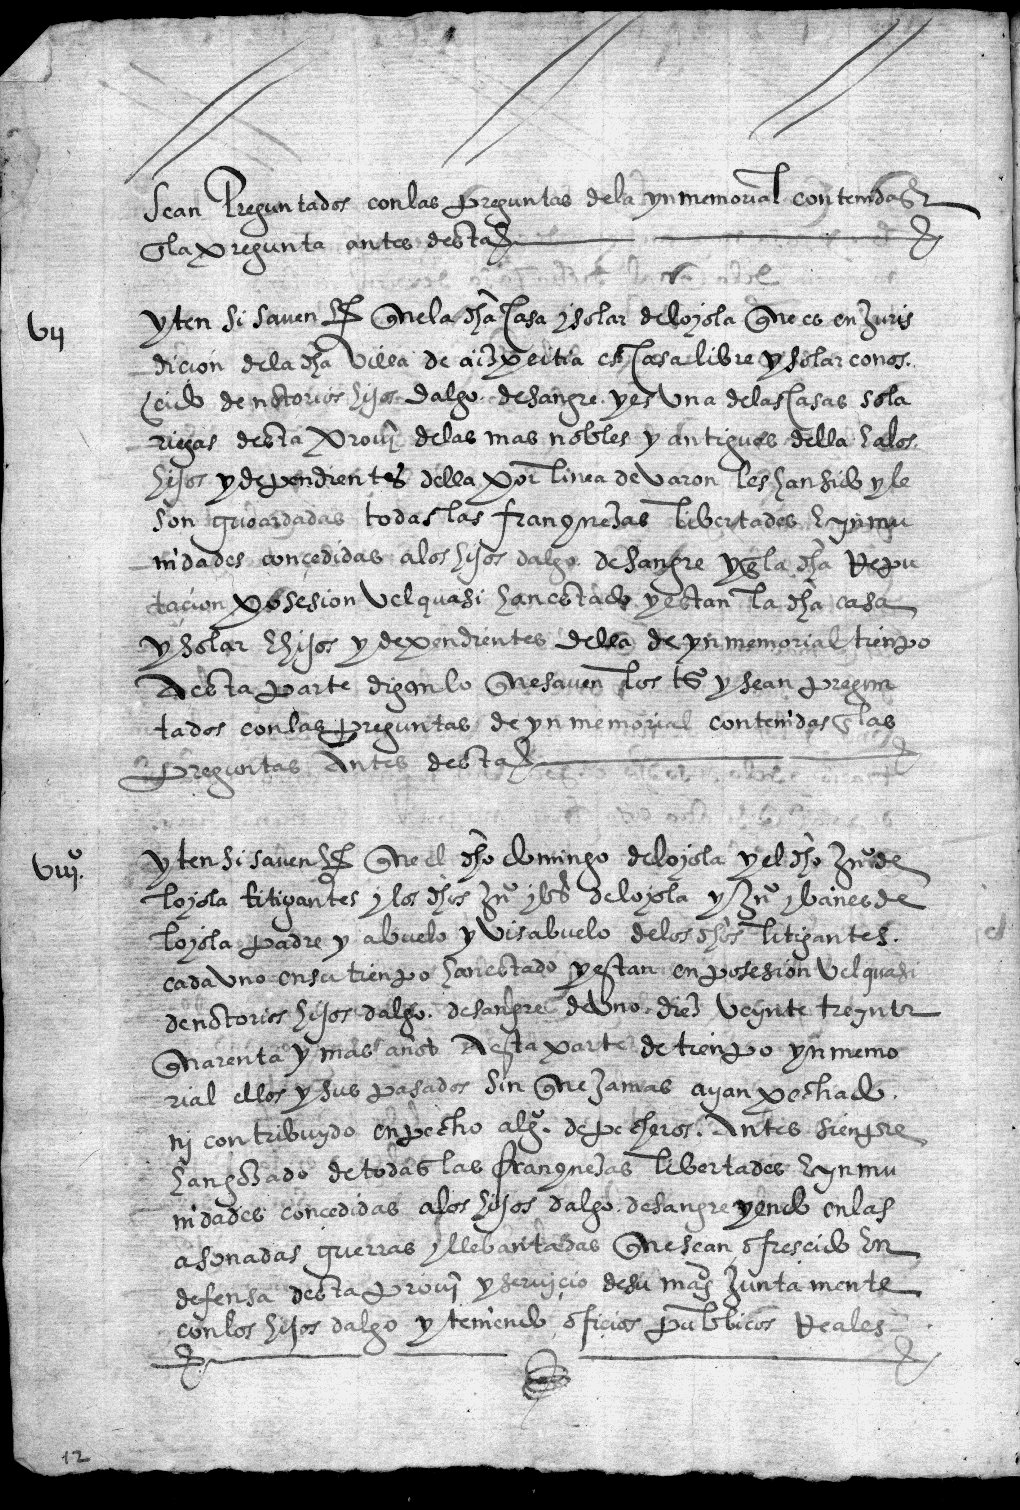 Sean Preguntados con las preguntas dela ynmemorial contenidas
la pregunta antes desta
Vij
yten si saven que la dha casa y solar de loyola que es en Juris
dicion dela dha villa de aizpeitia es casa libre y solar conos
cido de notorios hijos dalgo de sangre. y es una delas casas sola
riegas desta provi delas mas nobles y antiguas della e alos
hijos y dependientes della por linea de varon les han sido y le
son guoardadas todas las franquezas libertades e ynmu
nidades concedidas a los hijos dalgo de sangre y la dha Repu
tacion posesion vel quasi han estado y estan la dha casa
y solar e hijos y dependientes della de ynmemorial tienpo
A esta parte digan lo que saven los ts y sean pregun
tados con las preguntas de ynmemorial contenidas las
preguntas Antes desta
Viijº.
yten si saven que el dho domingo de loyola y el dho Juº de
loyola litigantes y los dhos Juº de loyola y Juº ybanes de
loyola padre y abuelo y visabuelo delos dhos litigantes.
cada uno en su tienpo han estado y estan en posesion vel quasi
de notorios hijos dalgo. de sangre de uno. diez veynte treynta
quarenta y mas años A esta parte de tienpo ynmemo
rial ellos y sus pasados sin que jamas ayan pechado.
nj contribuydo en pecho algº. de pecheros. Antes sienpre
han gozado de todas las franquezas libertades e ynmu
nidades concedidas alos hijos dalgo. de sangre yendo en las
asonadas guerras y llebantadas que sean ofrescido en
defensa desta provj y servicio de su magd Junta mente
con los hijos dalgo y teniendo oficios publicos Reales
12